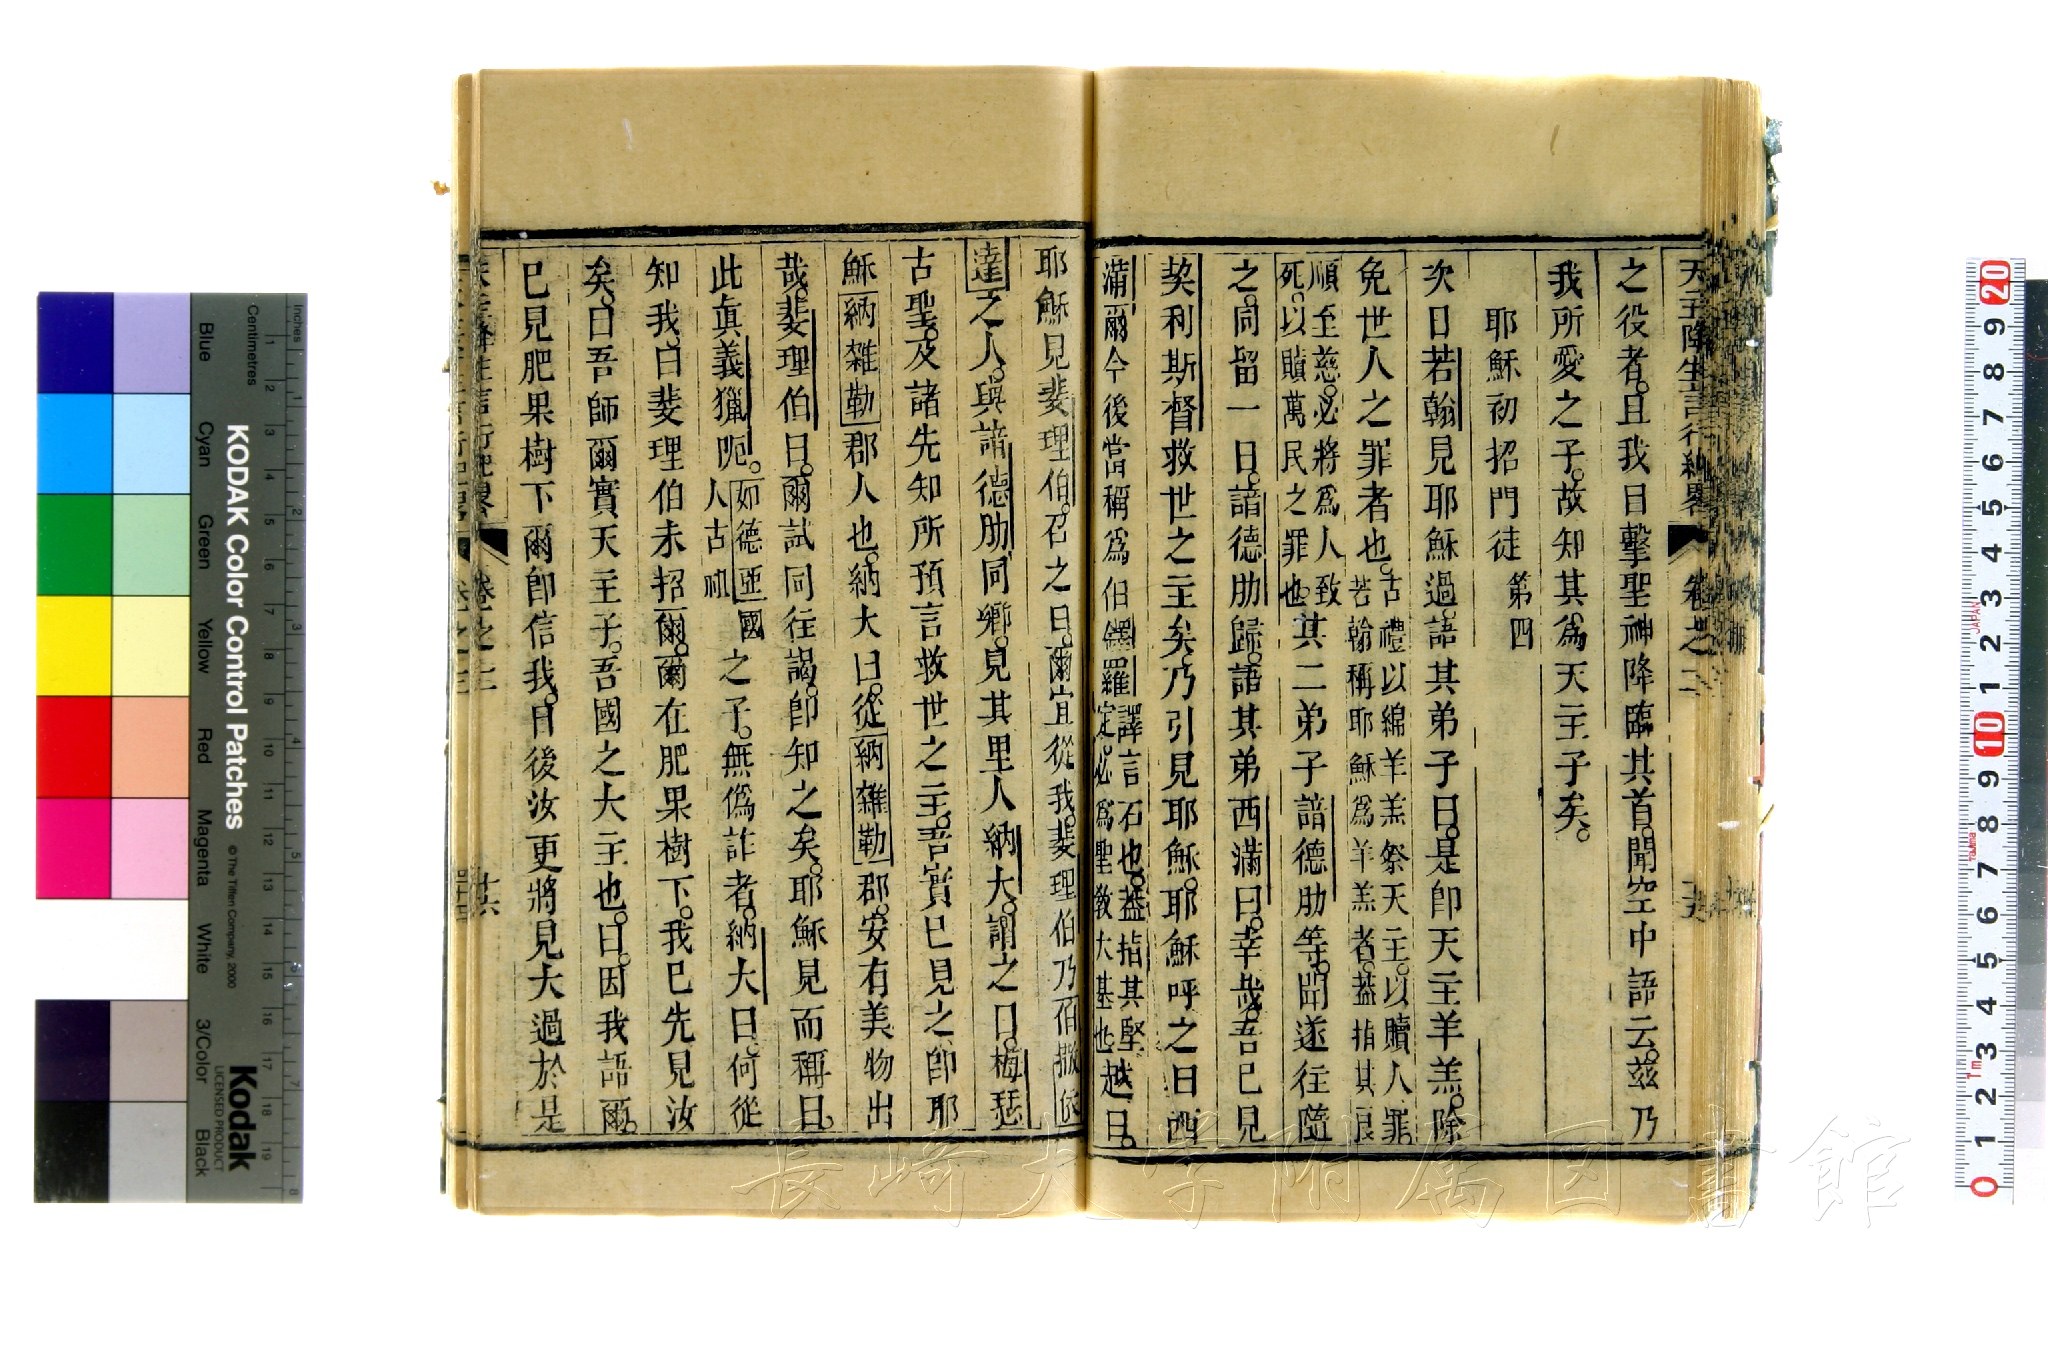 天主降生言行紀畧
卷之二
之役者。且我目擊聖神降臨其首。聞空中語云。茲乃
我所愛之子。故知其為天主子矣。
耶穌初招門徒 第四
次日若翰見耶穌過。語其弟子曰。是卽天主羊羔。除
免世人之罪者也。古禮以綿羊羔祭天主。以贖人罪。若翰稱耶穌為羊羔者。葢指其良
順至慈。必將為人致死。以贖萬民之罪也。其二弟子諳德肋等。聞遂往隨
之。同留一日。諳德肋歸。語其弟西滿曰。幸哉。吾已見
契利斯督救世之主矣。乃引見耶穌。耶穌呼之曰西
滿爾今後當稱為伯鐸羅 譯言石也。葢指其堅定。必為聖敎大基也 越日。
耶穌見斐理伯。召之曰。爾宜從我。斐理伯乃伯撒依
達之人。與諳德肋同鄉。見其里人納大。謂之曰。梅瑟
古聖。及諸先知所預言救世之主。吾實已見之。卽耶
穌納雜勒郡人也。納大曰。從納雜勒郡。安有美物出
哉。斐理伯曰。爾試同往謁。卽知之矣。耶穌見而稱曰。
此眞義臘呃。如德亞國人古祖 之子。無僞詐者。納大曰。何從
知我。曰斐理伯未招爾。爾在肥果樹下。我已先見汝
矣。曰吾師爾實天主子。吾國之大主也。曰。因我語爾。
已見肥果樹下爾卽信我。日後汝更將見大過於是
天主降生言行紀畧
卷之二
廿六
長崎大学附属図書館
KODAK Color Control Patches
© The Tiffen Company, 2000
Kodak
LICENSED PRODUCT
Inches
Centimetres
Blue
Cyan
Green
Yellow
Red
Magenta
White
3/Color
Black
JAPAN